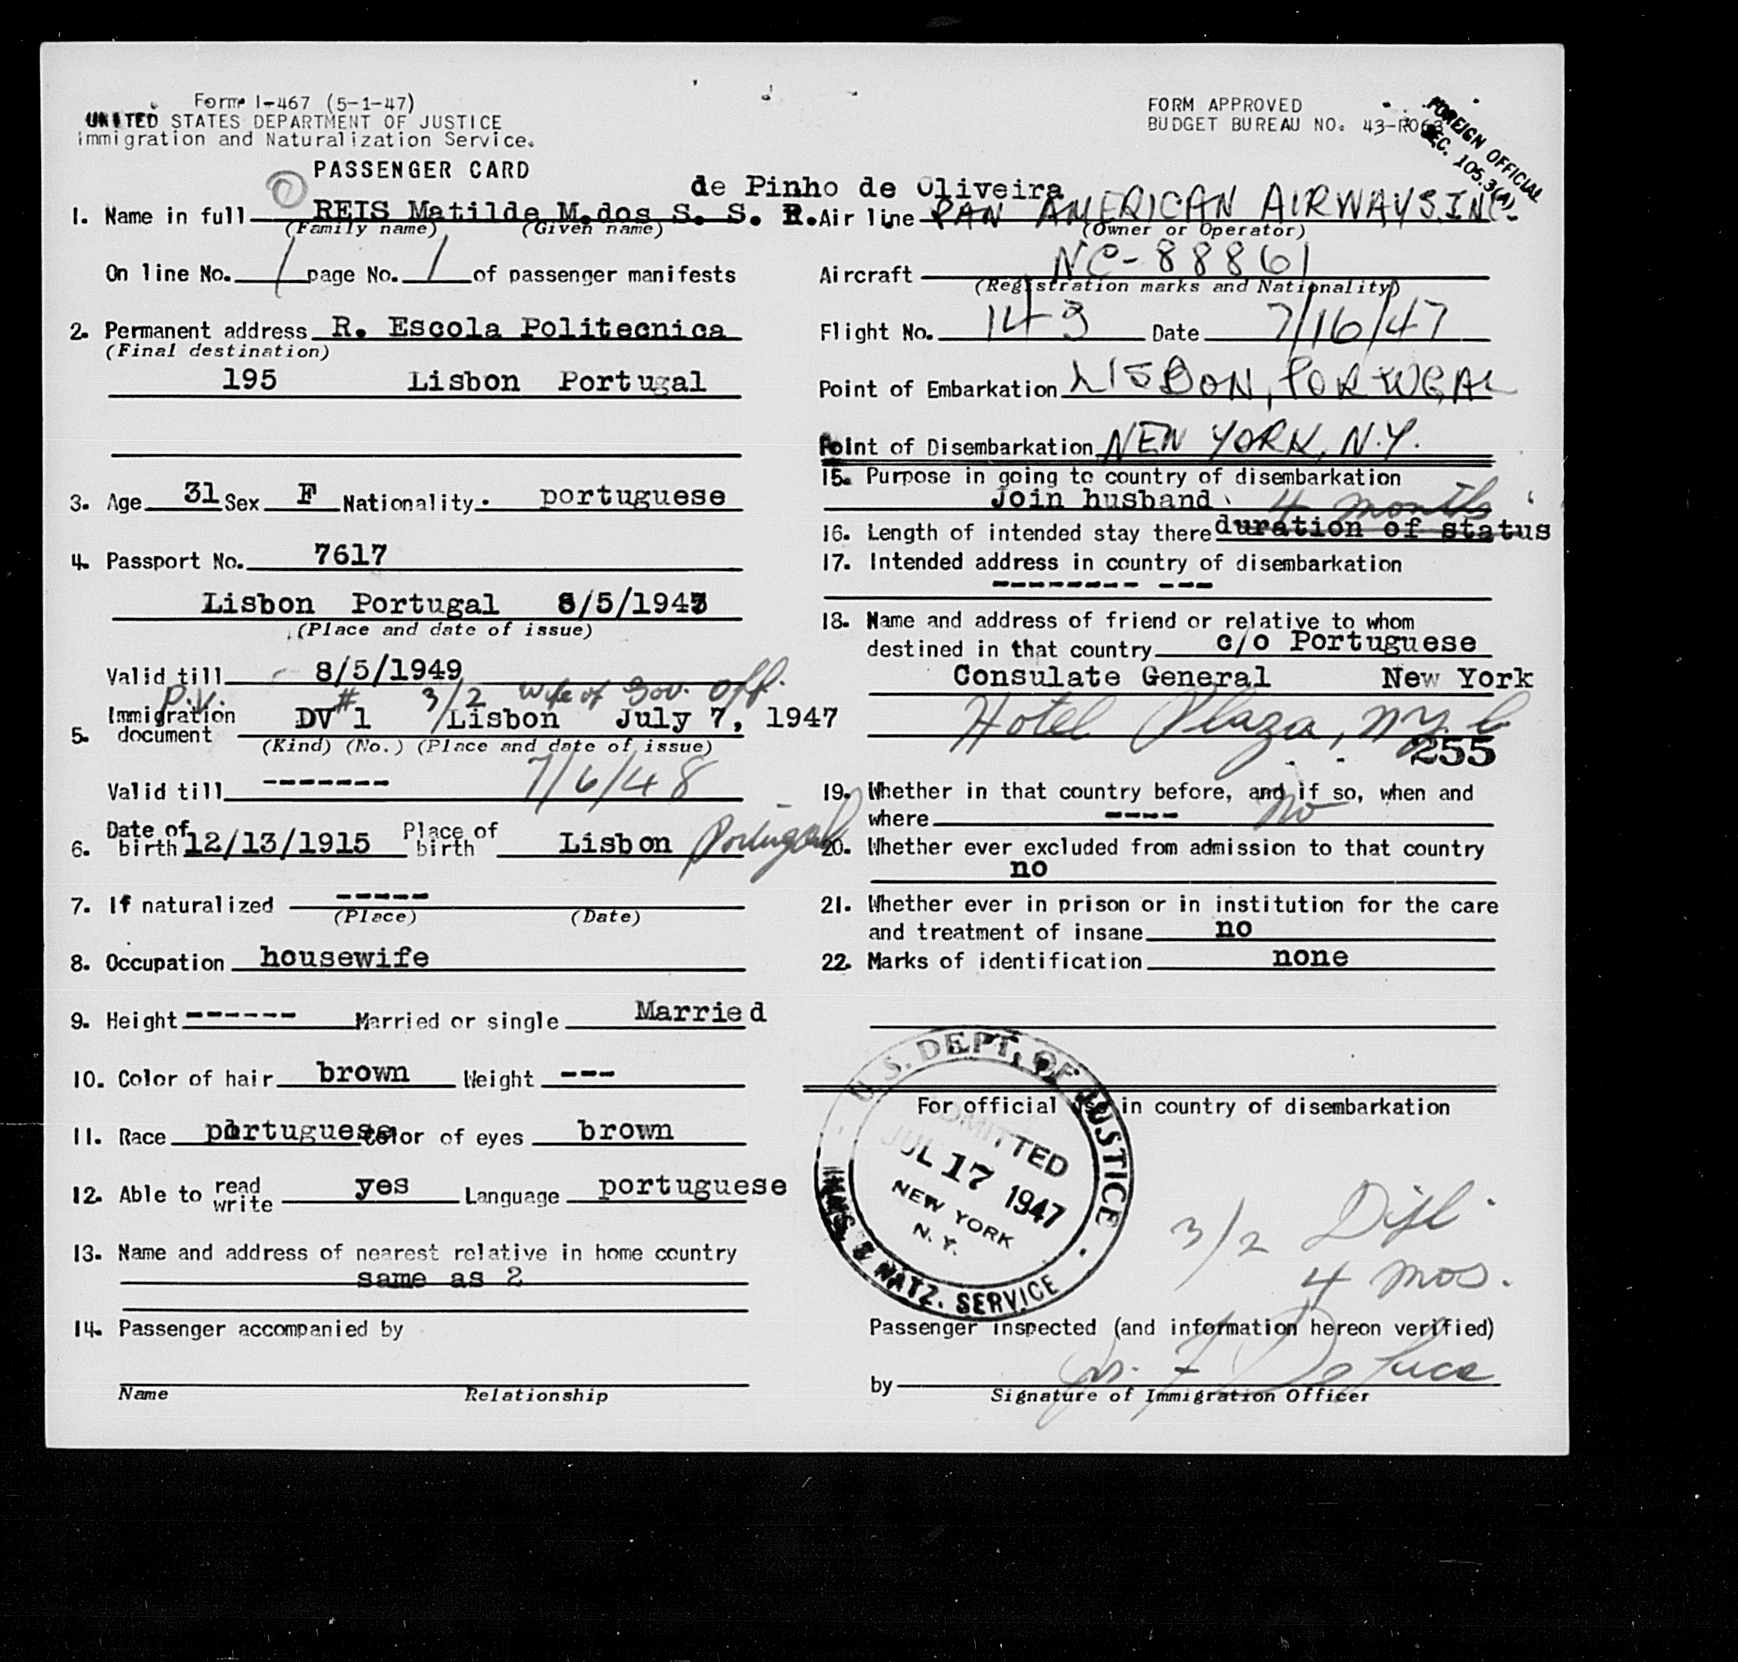 Form I-467 (5-1-47)
UNITED STATES DEPARTMENT OF JUSTICE
Immigration and Naturalization Service.
PASSENGER CARD
FORM APPROVED
BUDGET BUREAU NO. 43-R063
FOREIGN OFFICIAL
SEC. 105.3(A)
de Pinho de Oliveira
1. Name in full REIS Matilde M.dos S. S. R.
(Family name) (Given name)
On line No. 1 page No. 1 of passenger manifests
2. Permanent address R. Escola Politecnica
(Final destination)
195 Lisbon Portugal
3. Age 31 Sex F Nationality. portuguese
4. Passport No. 7617
Lisbon Portugal 8/5/1947
(Place and date of issue)
Valid till 8/5/1949
P.V. # 3/2 wife of Gov. Off.
5. Immigration document DV 1 Lisbon July 7, 1947
(Kind) (No.) (Place and date of issue)
Valid till ------- 7/6/48
6. Date of birth 12/13/1915 Place of birth Lisbon Portugal
7. If naturalized -----
(Place) (Date)
8. Occupation housewife
9. Height ------ Married or single Married
10. Color of hair brown Weight ---
11. Race portuguese Color of eyes brown
12. Able to read write yes Language portuguese
13. Name and address of nearest relative in home country
same as 2
14. Passenger accompanied by
Name Relationship
Air line PAN AMERICAN AIRWAYS. INC.
(Owner or Operator)
Aircraft NC-88861
(Registration marks and Nationality)
Flight No. 143 Date 7/16/47
Point of Embarkation LISBON, PORTUGAL
Point of Disembarkation NEW YORK, N.Y.
15. Purpose in going to country of disembarkation
Join husband 4 months
16. Length of intended stay there duration of status
17. Intended address in country of disembarkation
-------- ---
18. Name and address of friend or relative to whom
destined in that country c/o Portuguese
Consulate General New York
Hotel Plaza, NY. C
255
19. Whether in that country before, and if so, when and
where ---- No
20. Whether ever excluded from admission to that country
no
21. Whether ever in prison or in institution for the care
and treatment of insane no
22. Marks of identification none
For official use in country of disembarkation
U.S. DEPT. OF JUSTICE
ADMITTED
JUL 17 1947
NEW YORK
N.Y.
IMM. & NATZ. SERVICE
3/2 Dipl.
4 mos.
Passenger inspected (and information hereon verified)
by
Signature of Immigration Officer